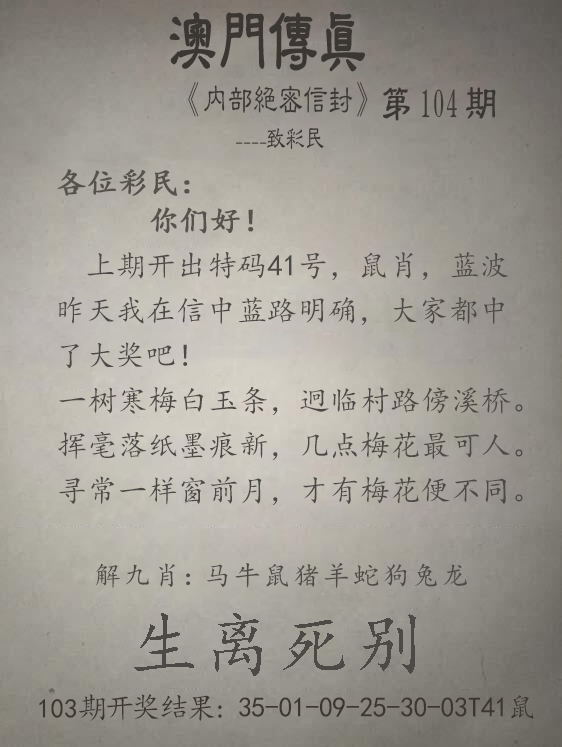 澳門傳眞
《内部絕密信封》第104期
----致彩民
各位彩民：
你们好！
上期开出特码41号，鼠肖，蓝波
昨天我在信中蓝路明确，大家都中
了大奖吧！
一树寒梅白玉条，迥临村路傍溪桥。
挥毫落纸墨痕新，几点梅花最可人。
寻常一样窗前月，才有梅花便不同。
解九肖：马牛鼠猪羊蛇狗兔龙
生离死别
103期开奖结果：35-01-09-25-30-03T41鼠